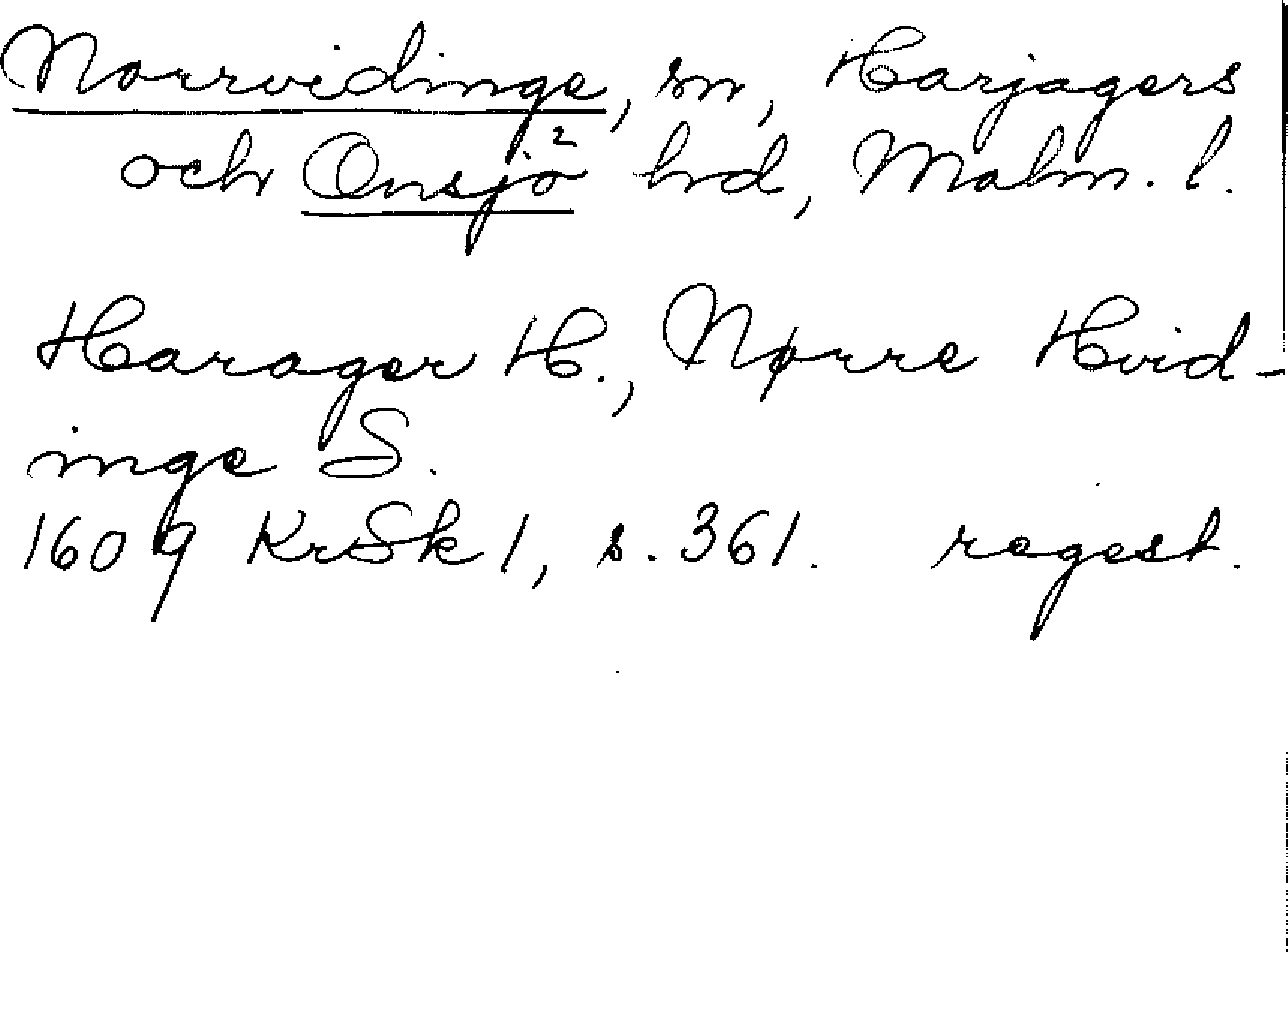 Norrvidinge, sn, Harjagers
och Onsjö² hrd, Malm. l.
Harager H., Nørre Hvid-
inge S.
1609 KrSk 1, s. 361. regest.